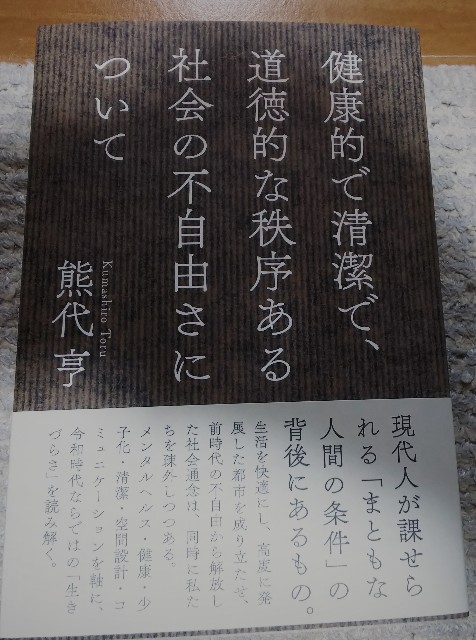 健康的で清潔で、
道徳的な秩序ある
社会の不自由さに
ついて
熊代亨
Kumashiro Toru
現代人が課せら
れる「まともな
人間の条件」の
背後にあるもの。
生活を快適にし、高度に発
展した都市を成り立たせ、
前時代の不自由から解放し
た社会通念は、同時に私た
ちを疎外しつつある。
メンタルヘルス・健康・少
子化・清潔・空間設計・コ
ミュニケーションを軸に、
令和時代ならではの「生き
づらさ」を読み解く。